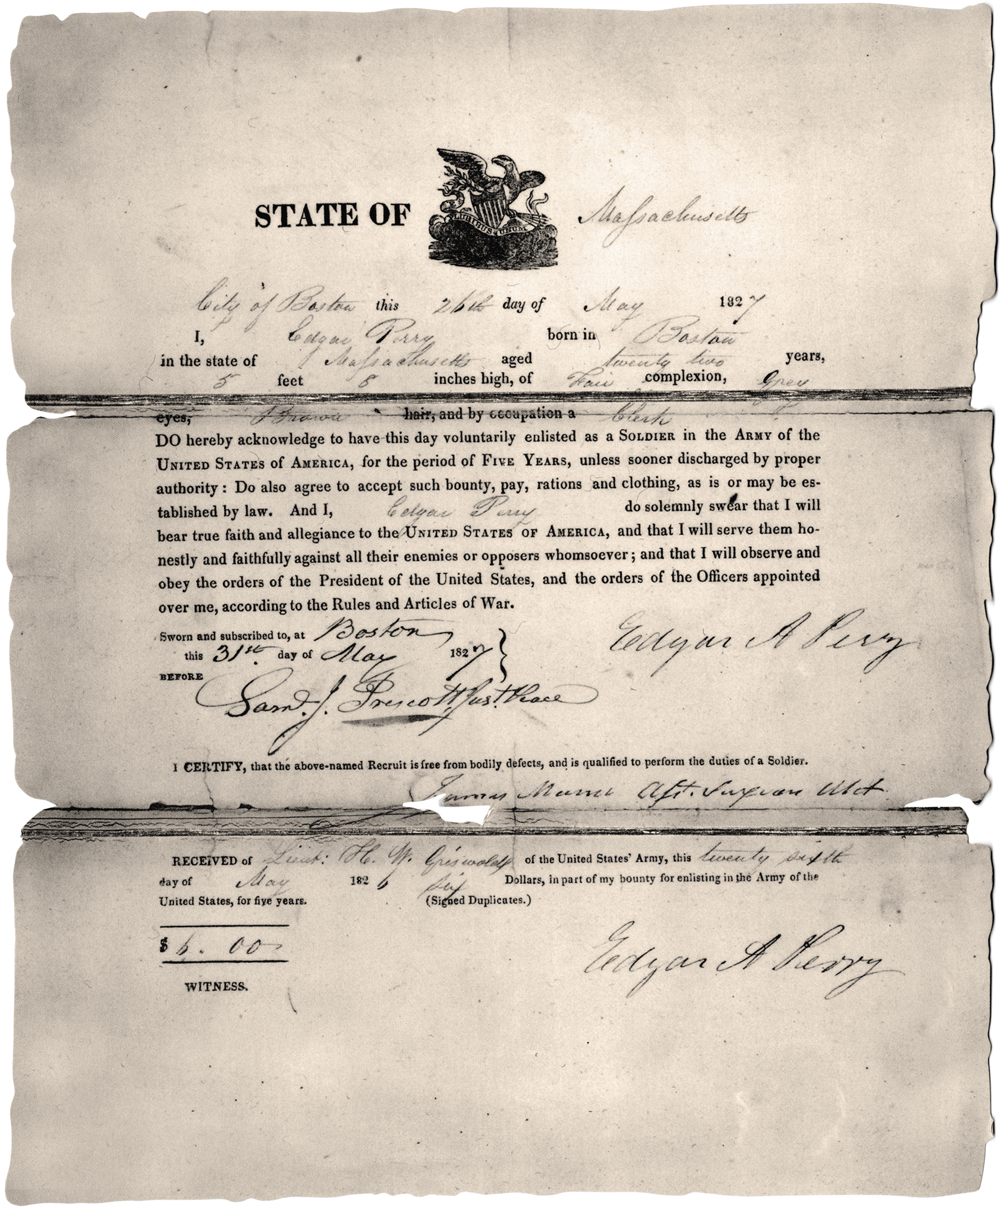 STATE OF Massachusetts
E PLURIBUS UNUM
City of Boston this 26th day of May 1827
I, Edgar Perry born in Boston
in the state of Massachusetts aged twenty two years,
5 feet 8 inches high, of Fair complexion, Grey
eyes, Brown hair, and by occupation a Clerk
DO hereby acknowledge to have this day voluntarily enlisted as a SOLDIER in the ARMY of the
UNITED STATES OF AMERICA, for the period of FIVE YEARS, unless sooner discharged by proper
authority: Do also agree to accept such bounty, pay, rations and clothing, as is or may be es-
tablished by law. And I, Edgar Perry do solemnly swear that I will
bear true faith and allegiance to the UNITED STATES OF AMERICA, and that I will serve them ho-
nestly and faithfully against all their enemies or opposers whomsoever; and that I will observe and
obey the orders of the President of the United States, and the orders of the Officers appointed
over me, according to the Rules and Articles of War.
Sworn and subscribed to, at Boston
this 31th day of May 1827
Edgar A Perry
BEFORE
Saml. J. Prescott Just. Peace
I CERTIFY, that the above-named Recruit is free from bodily defects, and is qualified to perform the duties of a Soldier.
RECEIVED of Lieut: H. W. Griswold of the United States' Army, this twenty sixth
day of May 1826 six Dollars, in part of my bounty for enlisting in the Army of the
United States, for five years. (Signed Duplicates.)
$ 6. 00
Edgar A Perry
WITNESS.